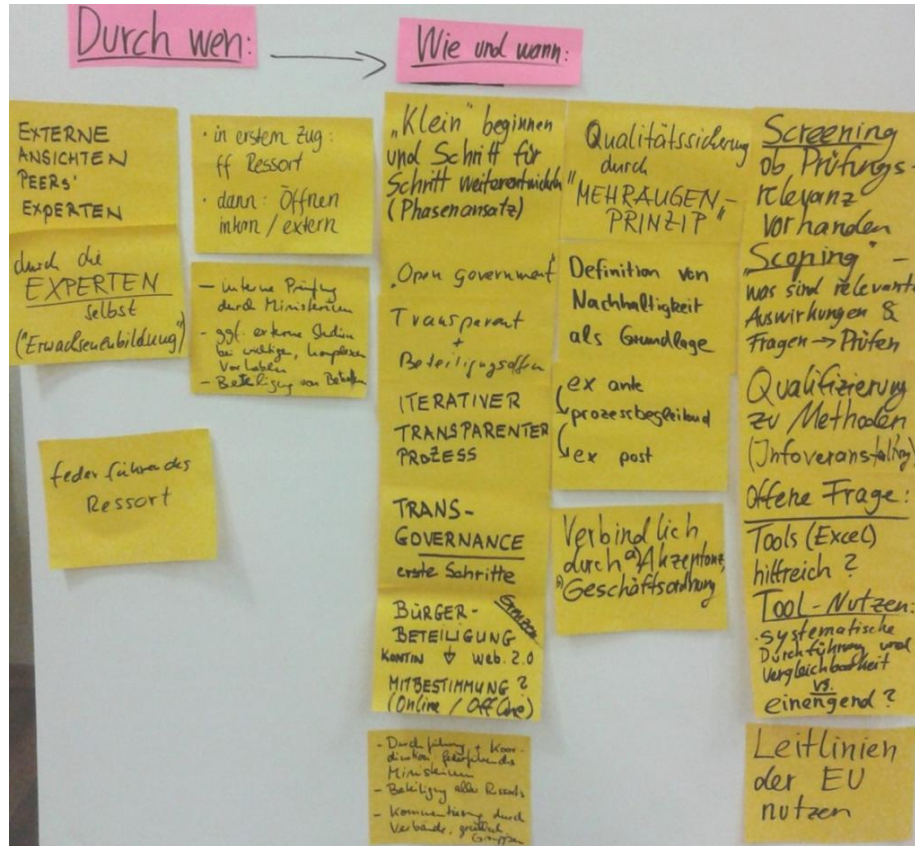 Durch wen:
Wie und wann:
EXTERNE
ANSICHTEN
PEERS'
EXPERTEN
durch die
EXPERTEN
selbst
("Erwachsenenbildung")
federführendes
Ressort
· in erstem Zug:
ff Ressort
· dann: Öffnen
/ extern
— interne Prüfung
durch Ministerium
- ggf. externe Studien
bei wichtigen, komplexen
Vorhaben
- Beteiligung von
„Klein" beginnen
und Schritt für
Schritt weiterentwickeln
(Phasenansatz)
„Open government"
Transparent
+
Beteiligungsoffen
ITERATIVER
TRANSPARENTER
PROZESS
TRANS-
GOVERNANCE
erste Schritte
BÜRGER- Grenzen
BETEILIGUNG
KONTIN ↓ Web. 2.0
MITBESTIMMUNG ?
(Online / Offline)
- Durchführung + Koor-
dination federführendes
Ministerium
- Beteiligung aller Ressorts
- Kommentierung durch
Verbände, Gruppen
Qualitätssicherung
durch
"MEHRAUGEN-
PRINZIP"
Definition von
Nachhaltigkeit
als Grundlage
ex ante
prozessbegleitend
ex post
Verbindlich
durch a) Akzeptanz,
b) Geschäftsordnung
Screening
ob Prüfungs-
relevanz
vorhanden
„Scoping" –
was sind relevante
Auswirkungen &
Fragen → Prüfen
Qualifizierung
zu Methoden
(Infoveranstaltung)
Offene Frage:
Tools (Excel)
hilfreich ?
Tool-Nutzen:
·systematische
Durchführung und
Vergleichbarkeit
vs.
einengend ?
Leitlinien
der EU
nutzen